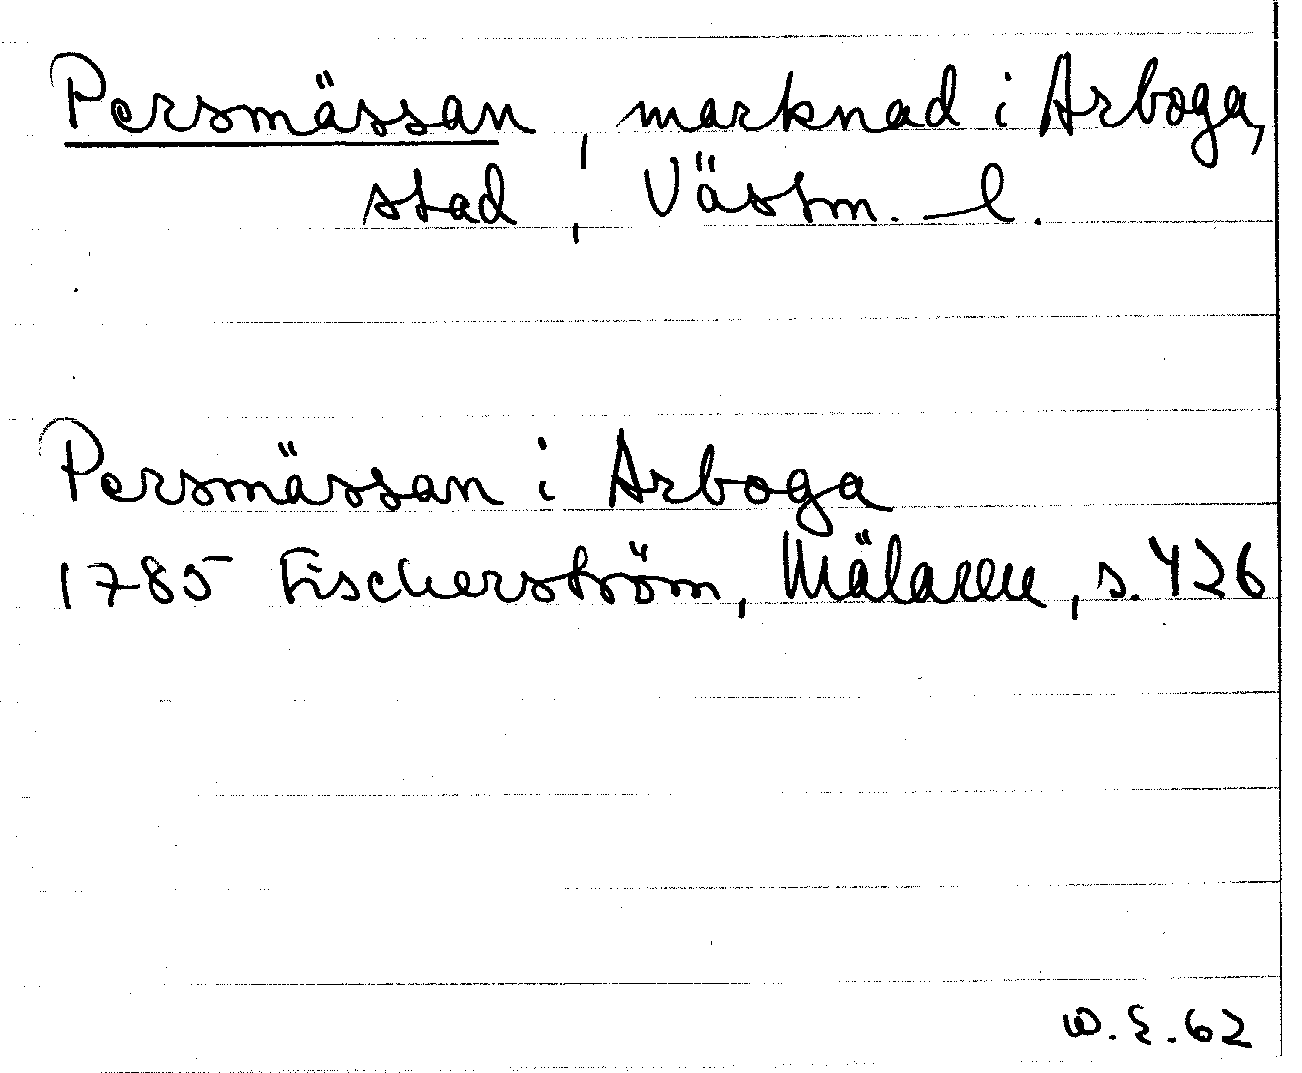 Persmässan, marknad i Arboga,
stad, Västm. l.
Persmässan i Arboga
1785 Fischerström, Mälaren, s. 426
W.E. 62